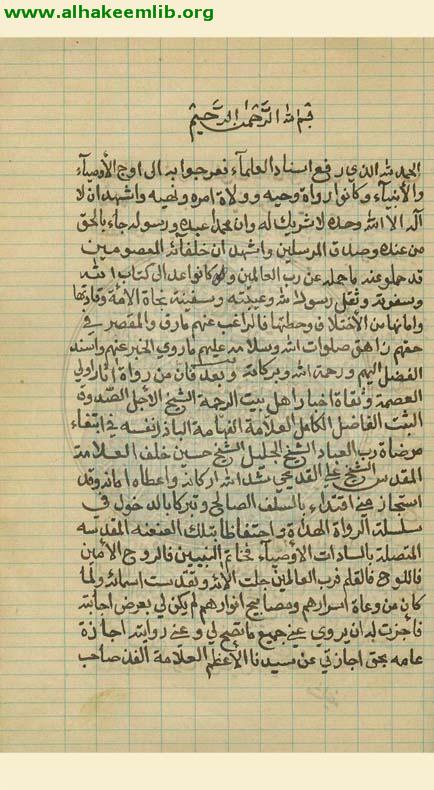 www.alhakeemlib.org
بسم الله الرَّحْمٰن الرَّحيم
الحمد لله الذي رفع اسناد العلمآء فعرجوا به الى اوج الأوصيآء
والأنبيآء وكانوا رواة وحيه وولاة امره ونهيه واشهد ان لا
آله الا الله وحده لا شريك له وان محمدا عبده ورسوله جاء بالحق
من عنده وصدق المرسلين واشهد ان خلفائه المعصومين
قد حملوا عنه ما حمله عن رب العالمين وكانوا عدل كتاب الله
وسفرته وثقل رسول الله وعيبته وسفينة نجاة الأمة وقادتها
وامانها من الأختلاف وحطتها فالراغب عنهم مارق والمقصر في
حقهم زاهق صلوات الله وسلامه عليهم ما روي الخبر عنهم واسند
الفضل اليهم ورحمة الله وبركاته وبعد فان من رواة آثار اولي
العصمة وثقاة اخبار اهل بيت الرحمة الشيخ الأجل الصدوة
الثبت الفاضل الكامل العلامة الفهامة الباذل نفسه في ابتغاء
مرضاة رب العباد الشيخ الجليل الشيخ حسين خلف العلامة
المقدس الشيخ علي القديحي شد الله اركانه واعطاه امانه وقد
استجاز مني اقتداء بالسلف الصالح وتبركا بالدخول في
سلسلة الرواة الهداة واحتفاظا بتلك العنعنه المقدسه
المتصلة بالسادات الأوصيآء فخاتم النبيين فالروح الأمين
فاللوح فالقلم فرب العالمين جلت آلائه وتقدست اسمائه ولما
كان من وعاة اسرارهم ومصابيح انوارهم لم يكن لي بد عن اجابته
فأجزت له ان يروي عني جميع ما تصح لي وعني روايته اجازة
عامه بحق اجازتي عن سيدنا الأعظم العلامة الفذ صاحب